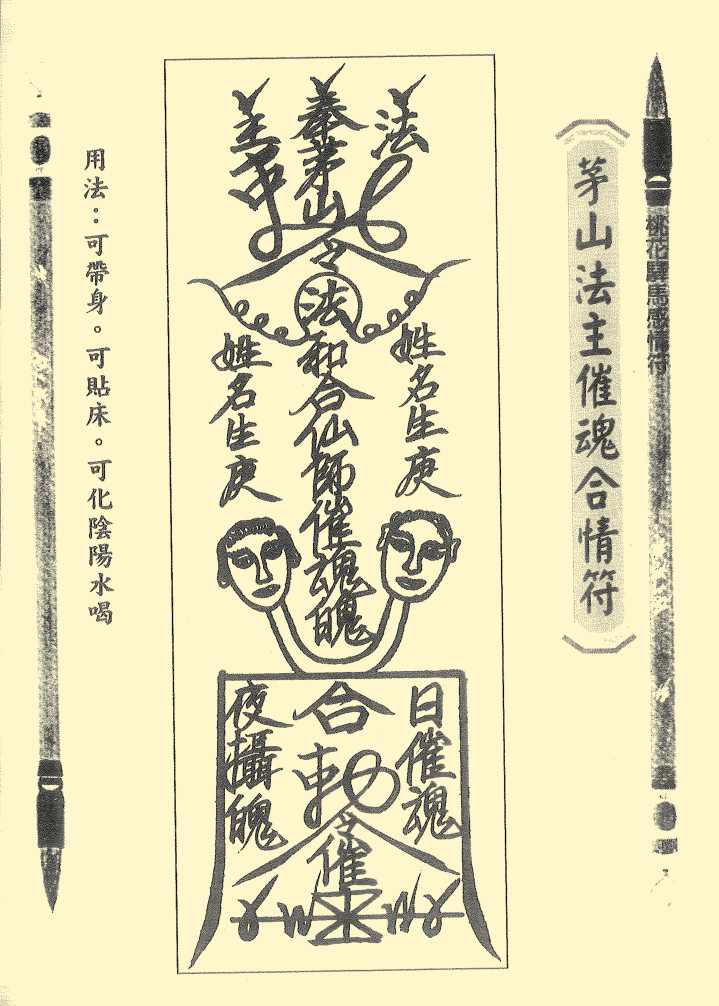 桃花驛馬感情符
茅山法主催魂合情符
法
奉茅山
主
令
法
姓名生庚
和合仙師催魂魄
姓名生庚
日催魂
合
勅
令
催
夜攝魄
用法：可帶身。可貼床。可化陰陽水喝